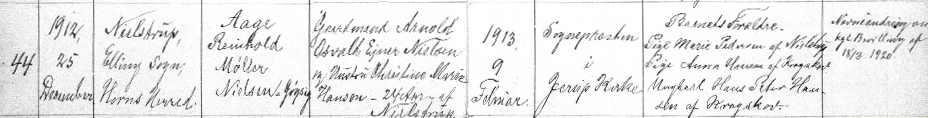 44
1912,
25
December
Nielstrup,
Elling Sogn,
Horns Herred.
Aage
Reinhold
Møller
Nielsen
Gaardmand Arnold
Osvald Ejner Nielsen
og Hustru Christine Marie
Hansen - 24 Aar - af
Nielstrup
1913.
9
Februar.
Sognepræsten
i
Jerup Kirke
Barnets Forældre.
Pige Marie Pedersen af
Pige Anna Hansen af Kragskov
Ungkarl Hans Peter Han-
sen af Kragskov.
Navneændring
kgl. Bevilling af
18/3 1920.